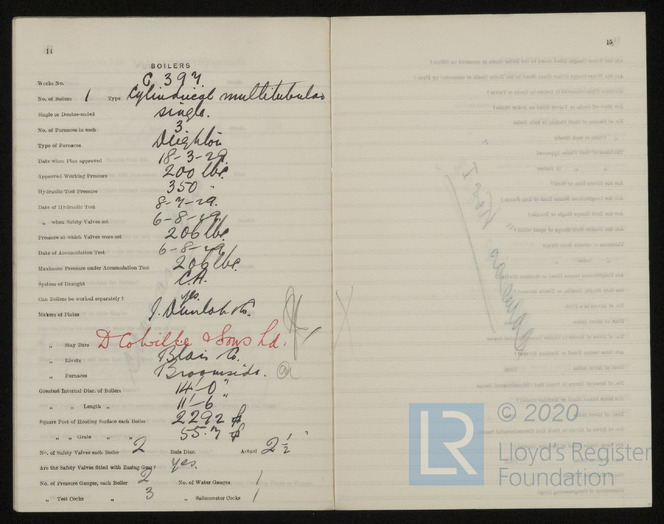 14
BOILERS
Works No. C 397.
No. of Boilers 1 Type Cylindrical multitubular
Single or Double-ended single.
No. of Furnaces in each 3
Type of Furnaces Deighton
Date when Plan approved 18-3-29.
Approved Working Pressure 200 lbs.
Hydraulic Test Pressure 350 "
Date of Hydraulic Test 8-7-29.
„ when Safety Valves set 6-8-29.
Pressure at which Valves were set 206 lbs.
Date of Accumulation Test 6-8-29
Maximum Pressure under Accumulation Test 206 lbs.
System of Draught
Can Boilers be worked separately? yes.
Makers of Plates J. Dunlop & Co.
„ Stay Bars D Colville & Sons Ld.
„ Rivets Blair Co.
„ Furnaces Broomside.
Greatest Internal Diam. of Boilers 14'-0"
„ „ Length „ 11'-6"
Square Feet of Heating Surface each Boiler 2292
„ „ Grate „ 55.7
No. of Safety Valves each Boiler 2 Rule Diam. Actual 2 1/2"
Are the Safety Valves fitted with Easing Gear? yes.
No. of Pressure Gauges, each Boiler 2 No. of Water Gauges 1
„ Test Cocks 3 „ Salinometer Cocks 1
15
© 2020
LR
Lloyd's Register
Foundation